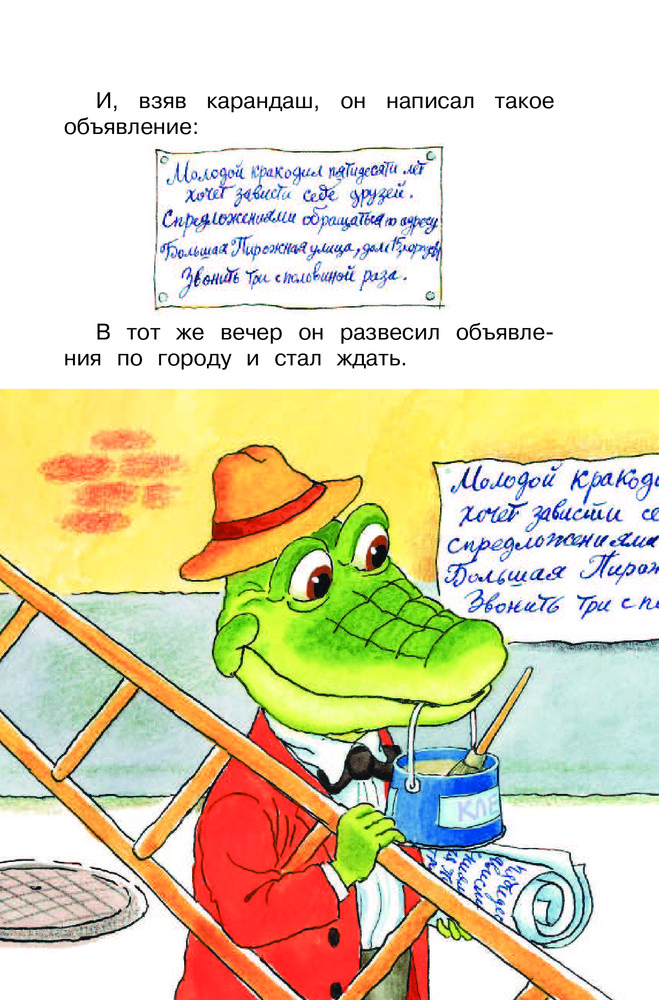 И, взяв карандаш, он написал такое
объявление:
Молодой кракодил пятидесяти лет
хочет зависти себе друзей.
Спредложениями обращаться по адресу
Большая Пирожная улица, дом 15, корпус
Звонить три споловиной раза.
В тот же вечер он развесил объявле-
ния по городу и стал ждать.
Молодой кракоди
хочет зависти се
спредложениями
Большая Пирож
Звонить три спо
КЛЕ